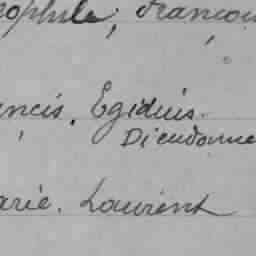 ophile, Francois
ncis. Egidius.
Dieudonne
arie. Laurent